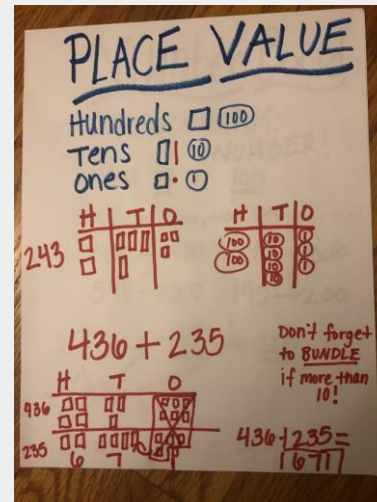 PLACE VALUE
Hundreds 100
Tens 10
ones 1
H T O H T O
243
100 10 1
100 10 1
10 1
10
436 + 235
Don't forget
to BUNDLE
if more than
10!
H T O
436
235
6 7 1
436+235=
671